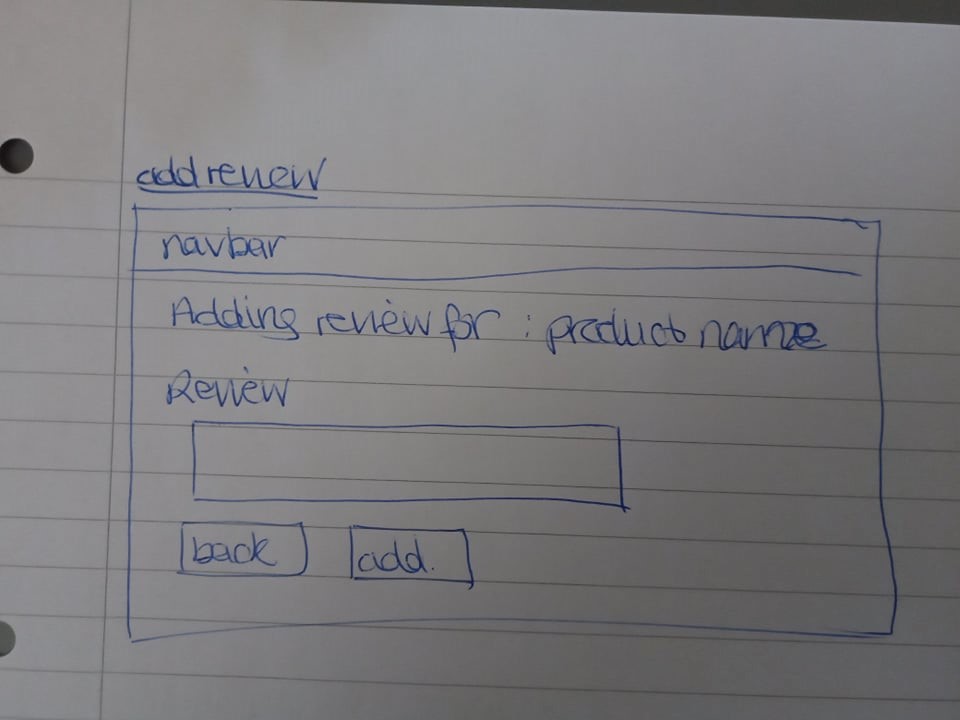 add review
navbar
Adding review for : product name
Review
back
add.